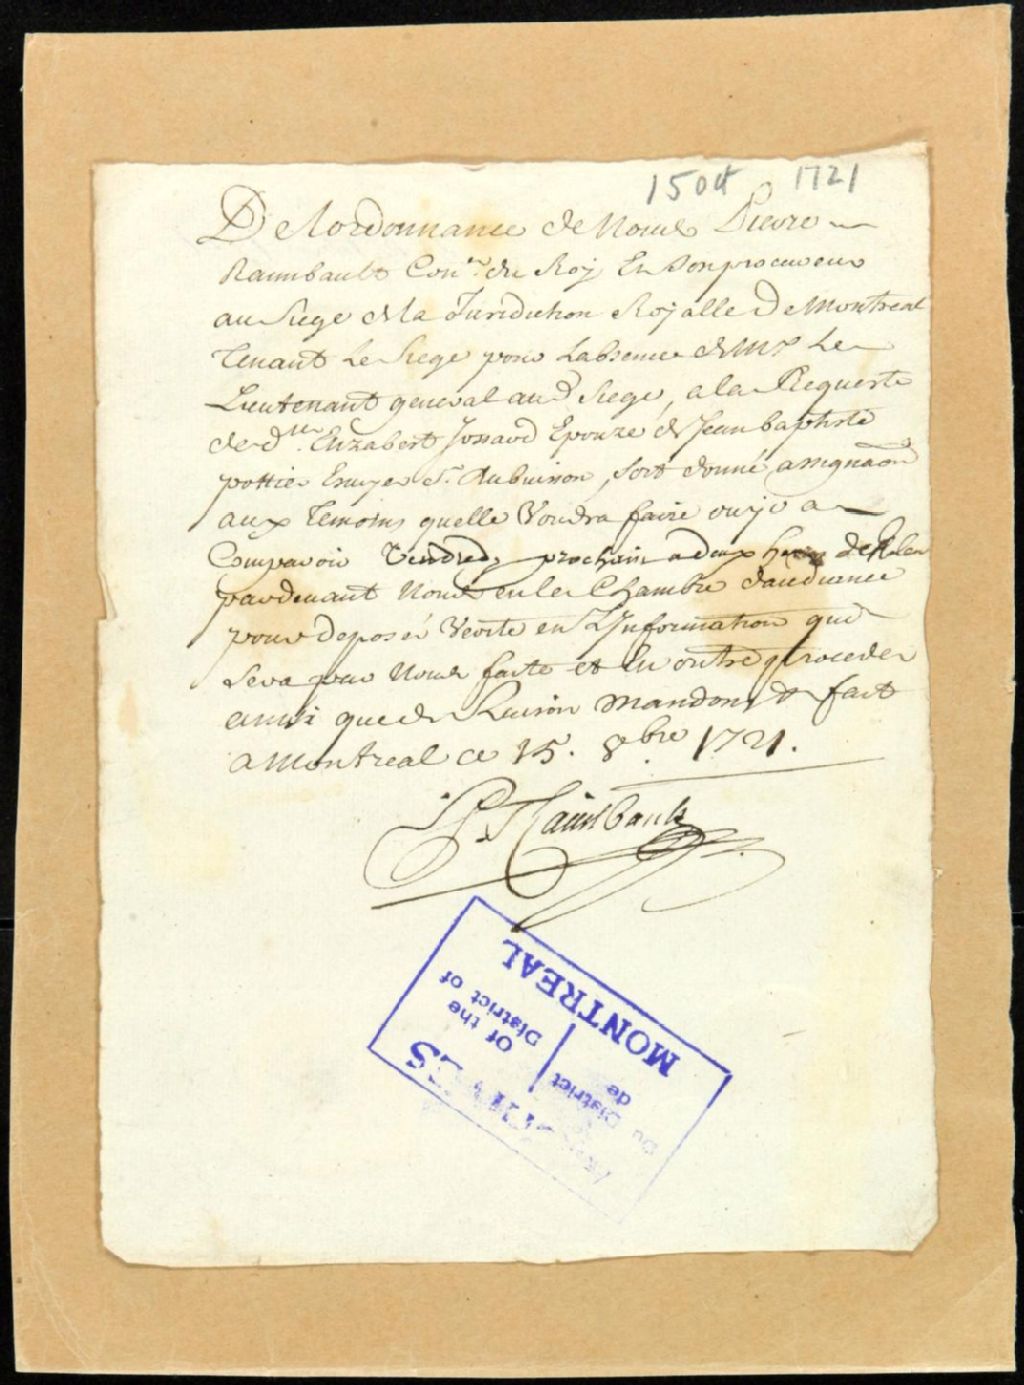 15 Oct 1721
De Lordonnance de Nous Pierre
Raimbault Con.er du Roy Et Son procureur
au Siege de la Juridiction Royalle De Montreal
Tenant Le Siege pour Labsence de Mr Le
Lieutenant general aud Siege, a la Requeste
de d.lle Elizabert Jossard Epouze de Jean baptiste
pottier Escuyer Sr. Dubuisson, soit donné assignaon
aux Temoins quelle Voudra faire ouyr a
Comparoir Vendredy prochain a deux heures de Relevée
pardevant Nous en la Chambre daudiance
pour deposer Verité en LInformation qui
Sera par Nous faite et En outre proceder
ainsi que de Raison Mandons &c fait
a Montreal ce 15. 8bre. 1721.
P. Raimbault
ARCHIVES
Of the
District of
Du District
de
MONTREAL